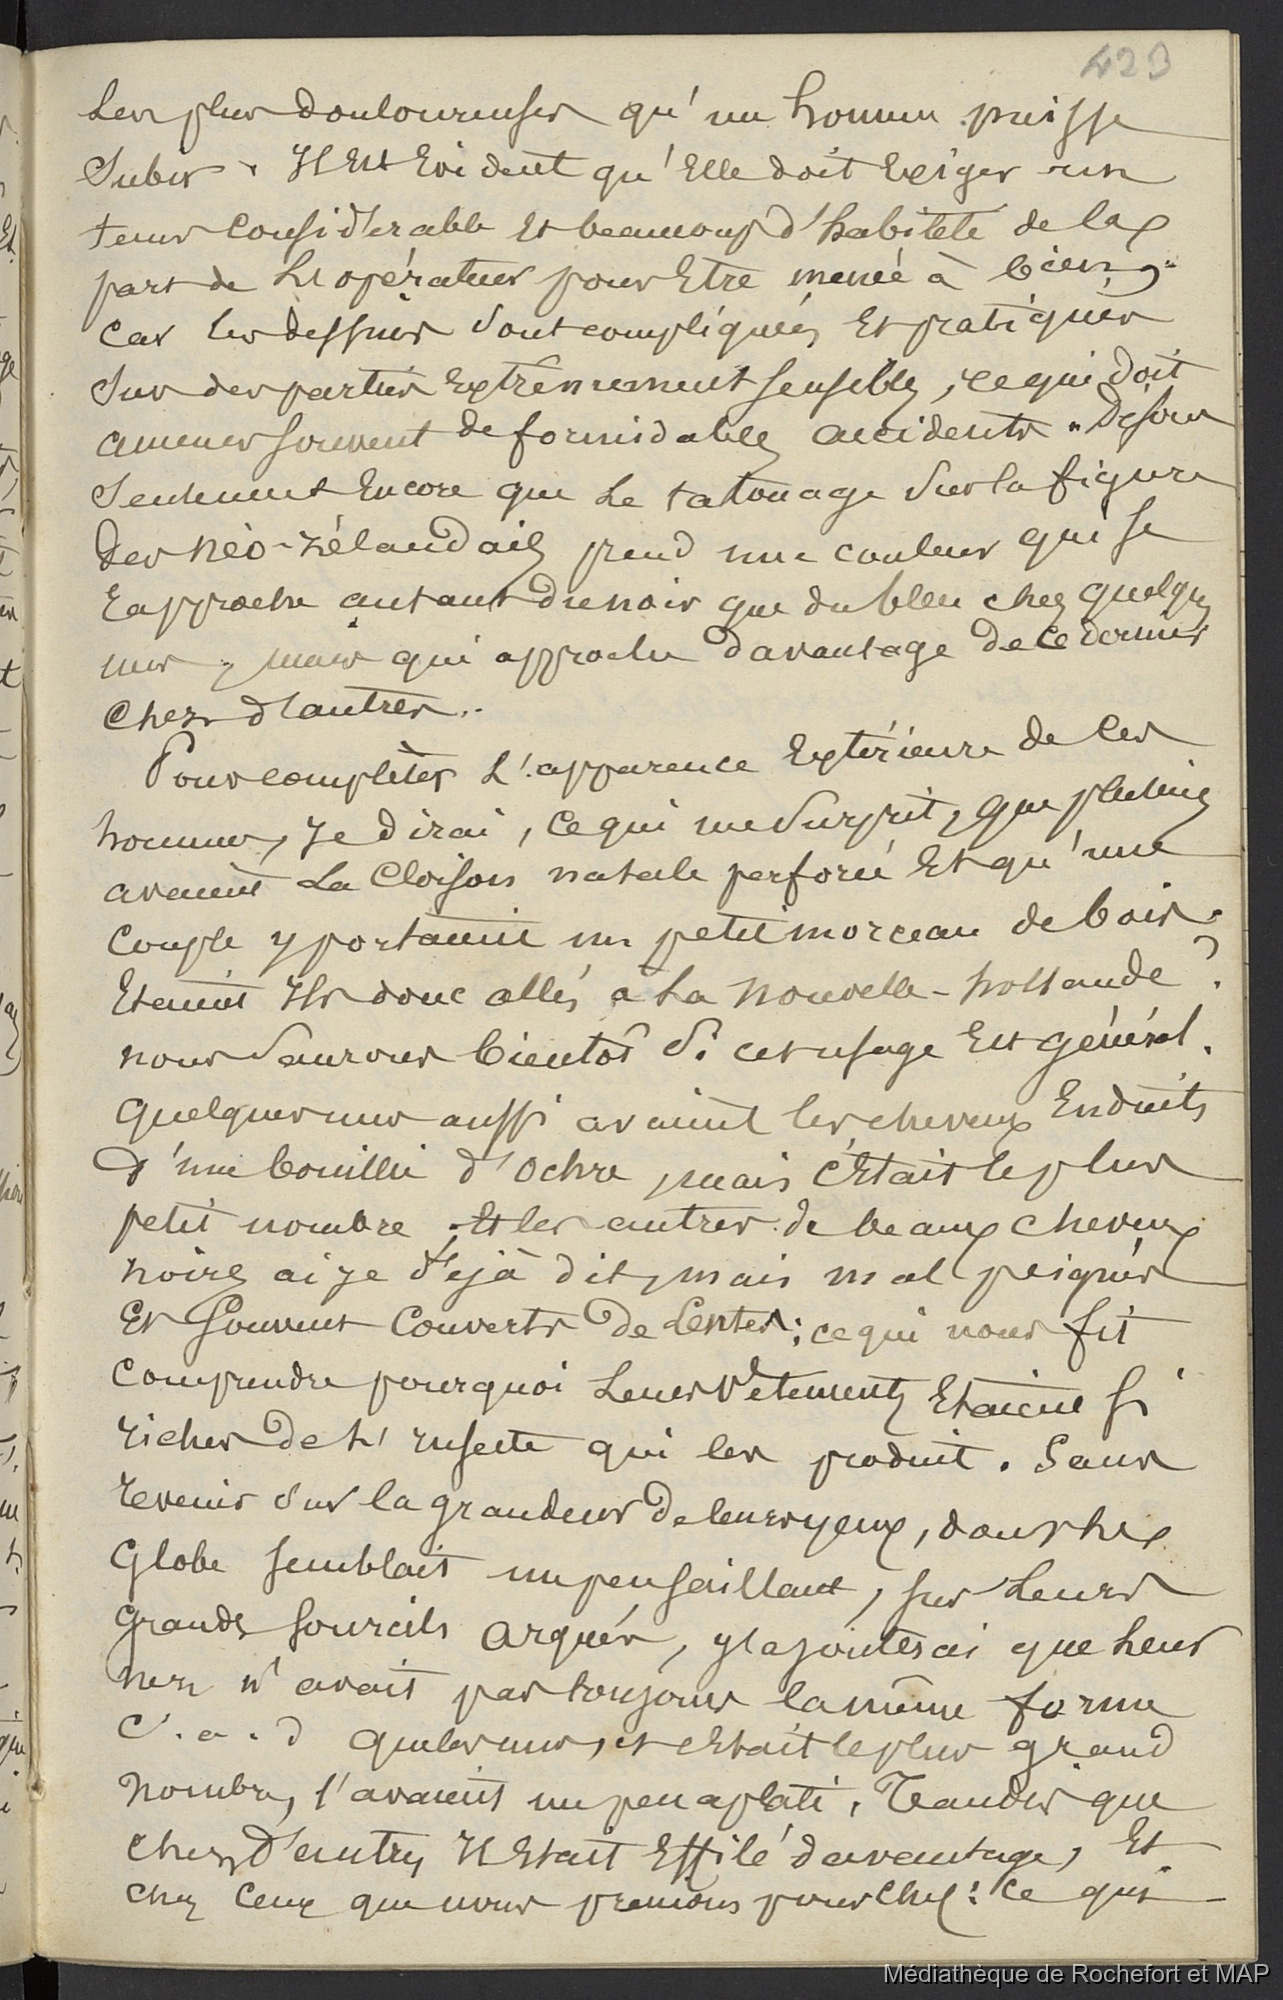 423
Les plus douloureuses qu'un homme puisse
Subir. Il Est Evident qu'Elle doit Exiger un
tems Considérable Et beaucoup d'habileté de la
part de L'opérateur pour Etre menée à bien,
Car les dessins sont compliqués Et pratiqués
Sur des parties Extrêmement sensibles, ce qui doit
amener souvent de formidables accidents. Disons
Seulement Encore que Le tatouage Sur la figure
des néo-zélandais prend une couleur qui se
rapproche autant du noir que du bleu chez quelques
uns, mais qui approche davantage de ce dernier
Chez d'autres.
Pour compléter L'apparence Extérieure de Ces
hommes, Je dirai, ce qui me Surprit, que plusieurs
avaient La Cloison nasale perforée Et qu'une
Couple y portaient un petit morceau de bois.
Etaient Ils donc allés à La Nouvelle-hollande?
nous Saurons bientôt Si cet usage Est général.
quelques uns aussi avaient les cheveux Enduits
d'une bouillie d'Ochre, mais c'Etait le plus
petit nombre, Et les autres de beaux cheveux
noirs ai je déjà dit, mais mal peignés
Et Souvent Couverts de Lentes; ce qui nous fit
Comprendre pourquoi Leurs Vêtements Etaient si
riches de L'insecte qui les produit. Sans
revenir sur la grandeur de leurs yeux, dont Le
Globe semblait un peu saillant, sur Leurs
grands sourcils arqués, j'ajouterai que Leur
nez n'avait pas toujours la même forme
C.a.d quelesuns, et c'Etait le plus grand
nombre, l'avaient un peu aplati, Tandis que
chez d'autres Il Etait Effilé davantage, Et
chez Ceux que nous prenions pour chefs: Ce qui
Médiathèque de Rochefort et MAP